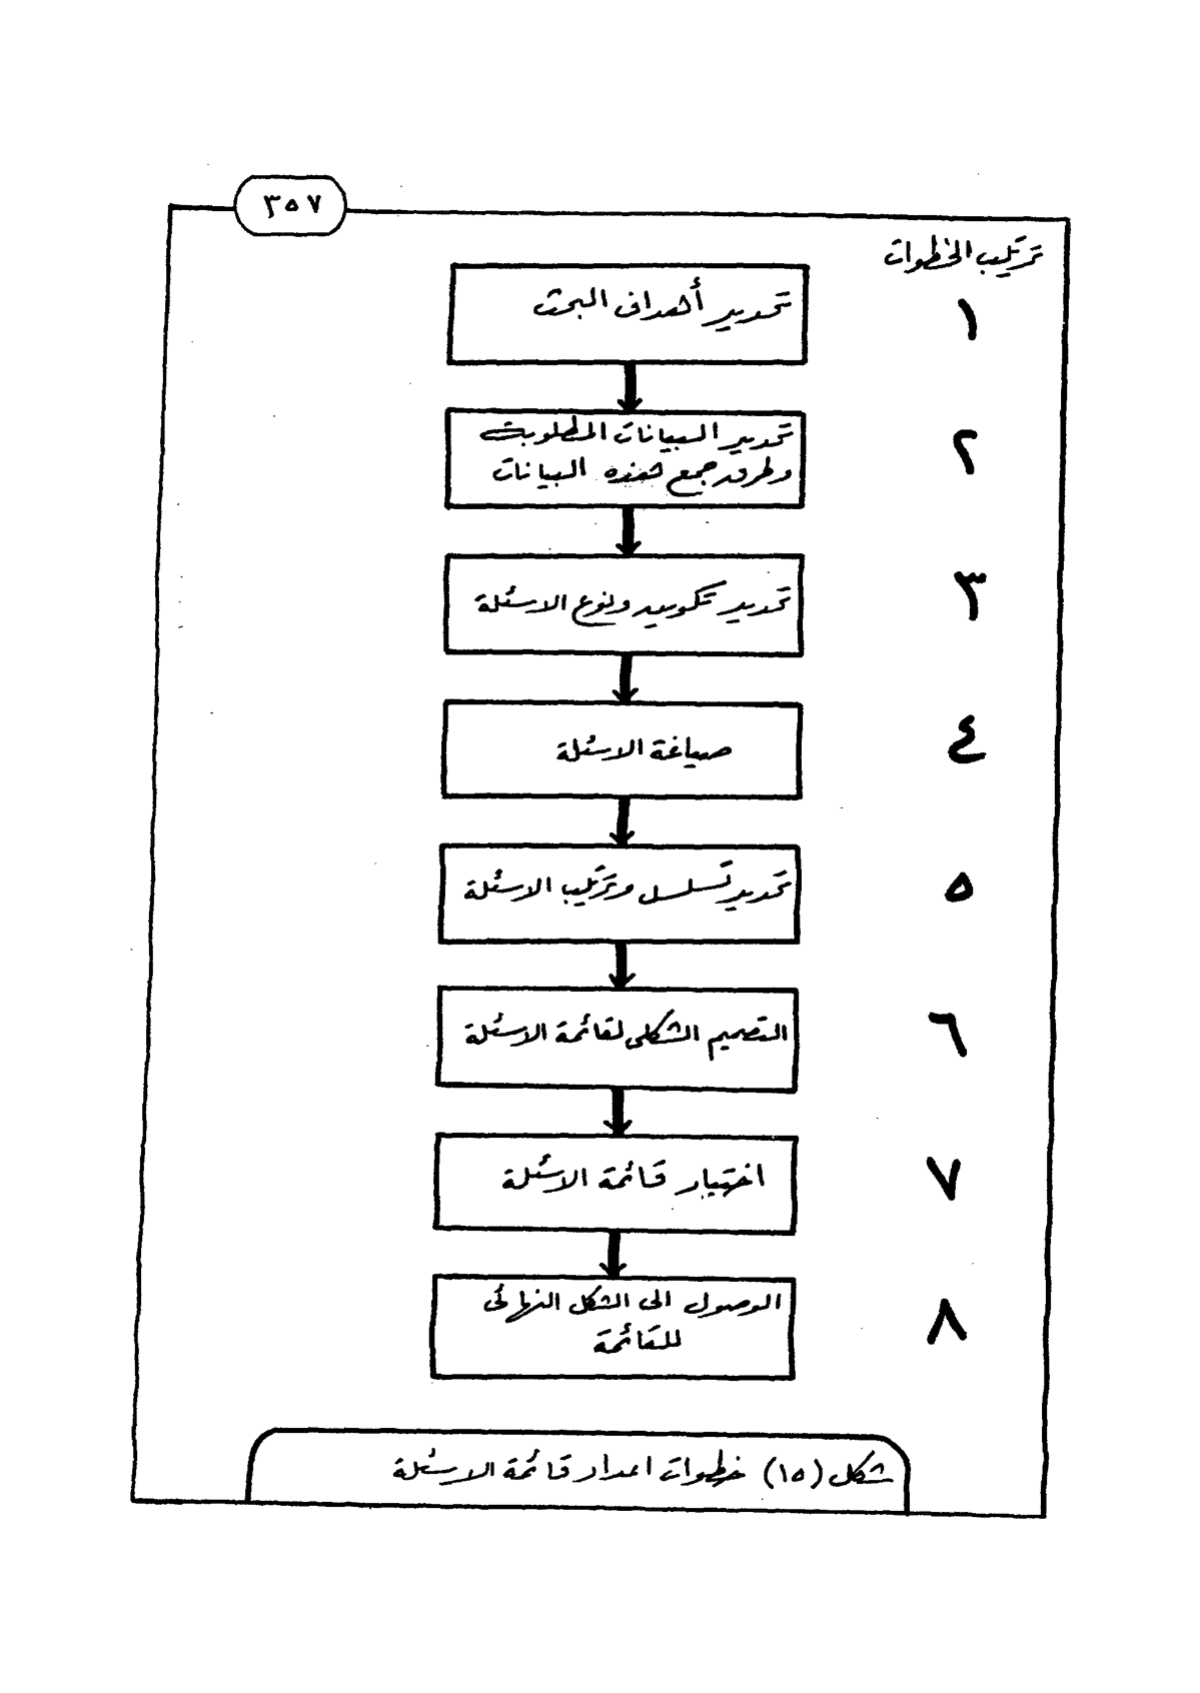 ٣٥٧
ترتيب الخطوات
١
تحديد أهداف البحث
٢
تحديد البيانات المطلوبة
وطرق جمع هذه البيانات
٣
تحديد تكوين ونوع الاسئلة
٤
صياغة الاسئلة
٥
تحديد تسلسل وترتيب الاسئلة
٦
التصميم الشكلى لقائمة الاسئلة
٧
اختبار قائمة الاسئلة
٨
الوصول الى الشكل النهائى
للقائمة
شكل (١٥) خطوات اعداد قائمة الاسئلة